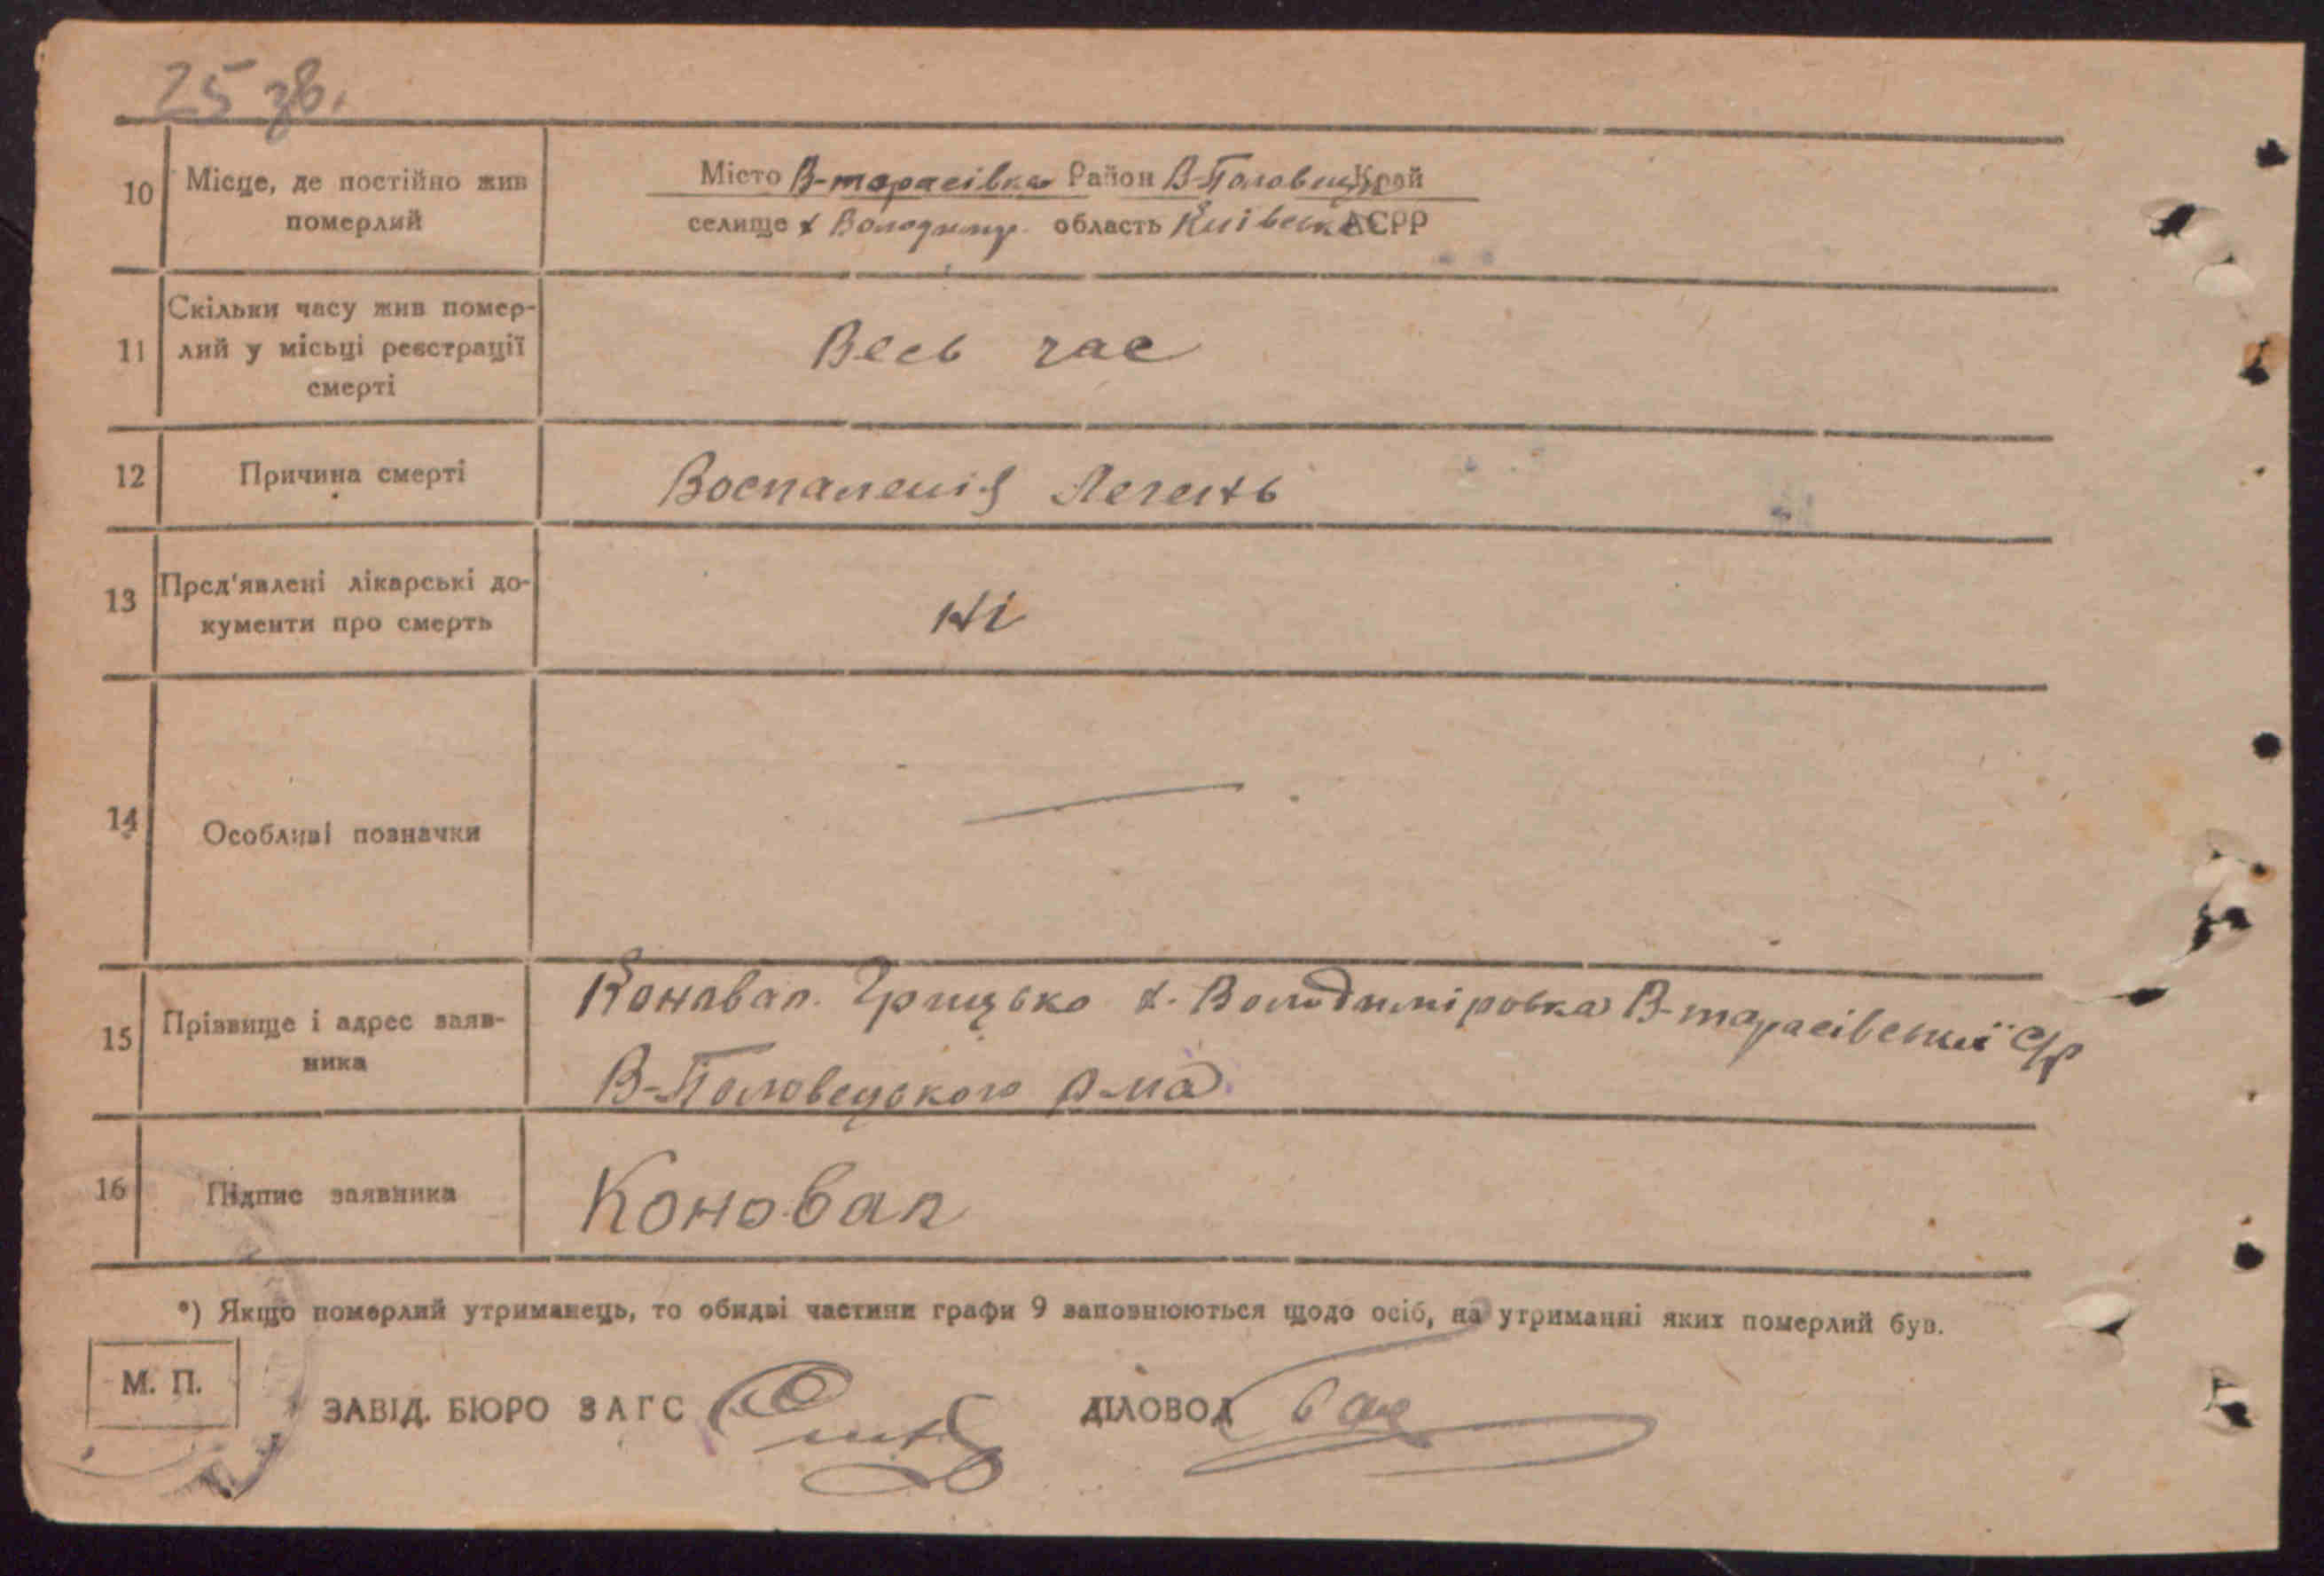 25 зв.
10 Місце, де постійно жив померлий
Місто В-тарасівка Район В-Половецьк Край
селище х Володимир. область Київська АСРР
11 Скільки часу жив помер-
лий у місьці реєстрації
смерті
Весь час
12 Причина смерті Воспаленія Легень
13 Пред'явлені лікарські до-
кументи про смерть
Ні
14 Особливі позначки —
15 Прізвище і адрес заяв-
ника
Коновал. Грицько х. Володиміровка В-тарасівської С/р
В-Половецького р-на
16 Підпис заявника Коновал
*) Якщо померлий утриманець, то обидві частини графи 9 заповнюються щодо осіб, на утриманні яких померлий був.
М. П.
ЗАВІД. БЮРО ЗАГС ДІЛОВОД